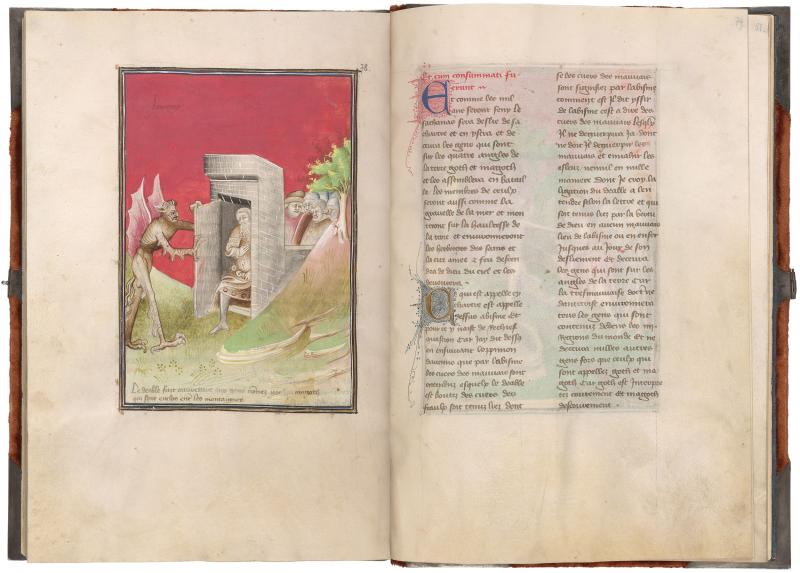 38.
Le deable faict
qui sont encloz entre les montaignes
Et cum consummati fu-
erunt
Et comme les mil
ans seront feny le
sathanas sera deslie de sa
chartre et en ystra et de
cevra les gens qui sont
sur les quatre angles de
la terre goth et magoth
et les assemblera en batail
le. les membres de ceulx
seront aussi comme la
gravelle de la mer et mon
teront sur la haultesse de
la terre et environneront
les herberges des sains et
la cite amee et feu descen
dra de dieu du ciel et les
devourera
Ce qui est appelle cy
chartre est appelle
dessus abisme et
pour ce y naist de rechief
question car jay dit dessus
en ensuivant loppinion
daucuns que par labisme
les cuers des mauvais sont
entendus esquelx le deable
est boutez des cuers des
sains soit tenuz liez dont
se les cuers des mauvais
sont signifiez par labisme
comment est il dit yssir
de labisme cest a dire des
cuers des mauvais lesqlx
il ne deguerpira ja dont
ne doit il deguerpir les
mauvais et envahir les
esleuz nennil en nulle
maniere dont je croy la
ligation du deable a len
tendre selon la lettre et qui
soit tenuz liez par la vertu
de dieu en aucun mauvais
lieu de labisme ou en enfer
jusques au jour de son
desliement et decevra
les gens qui sont sur les
angles de la terre car
la tresmauvaise doctrine
dantecrist environnera
tous les gens qui sont
contenuz dedens les iiii
regions du monde et ne
decevra nulles autres
gens fors que ceulx qui
sont appellez goth et ma
goth car goth est interpre
ter couvrement et magoth
descouvrement.